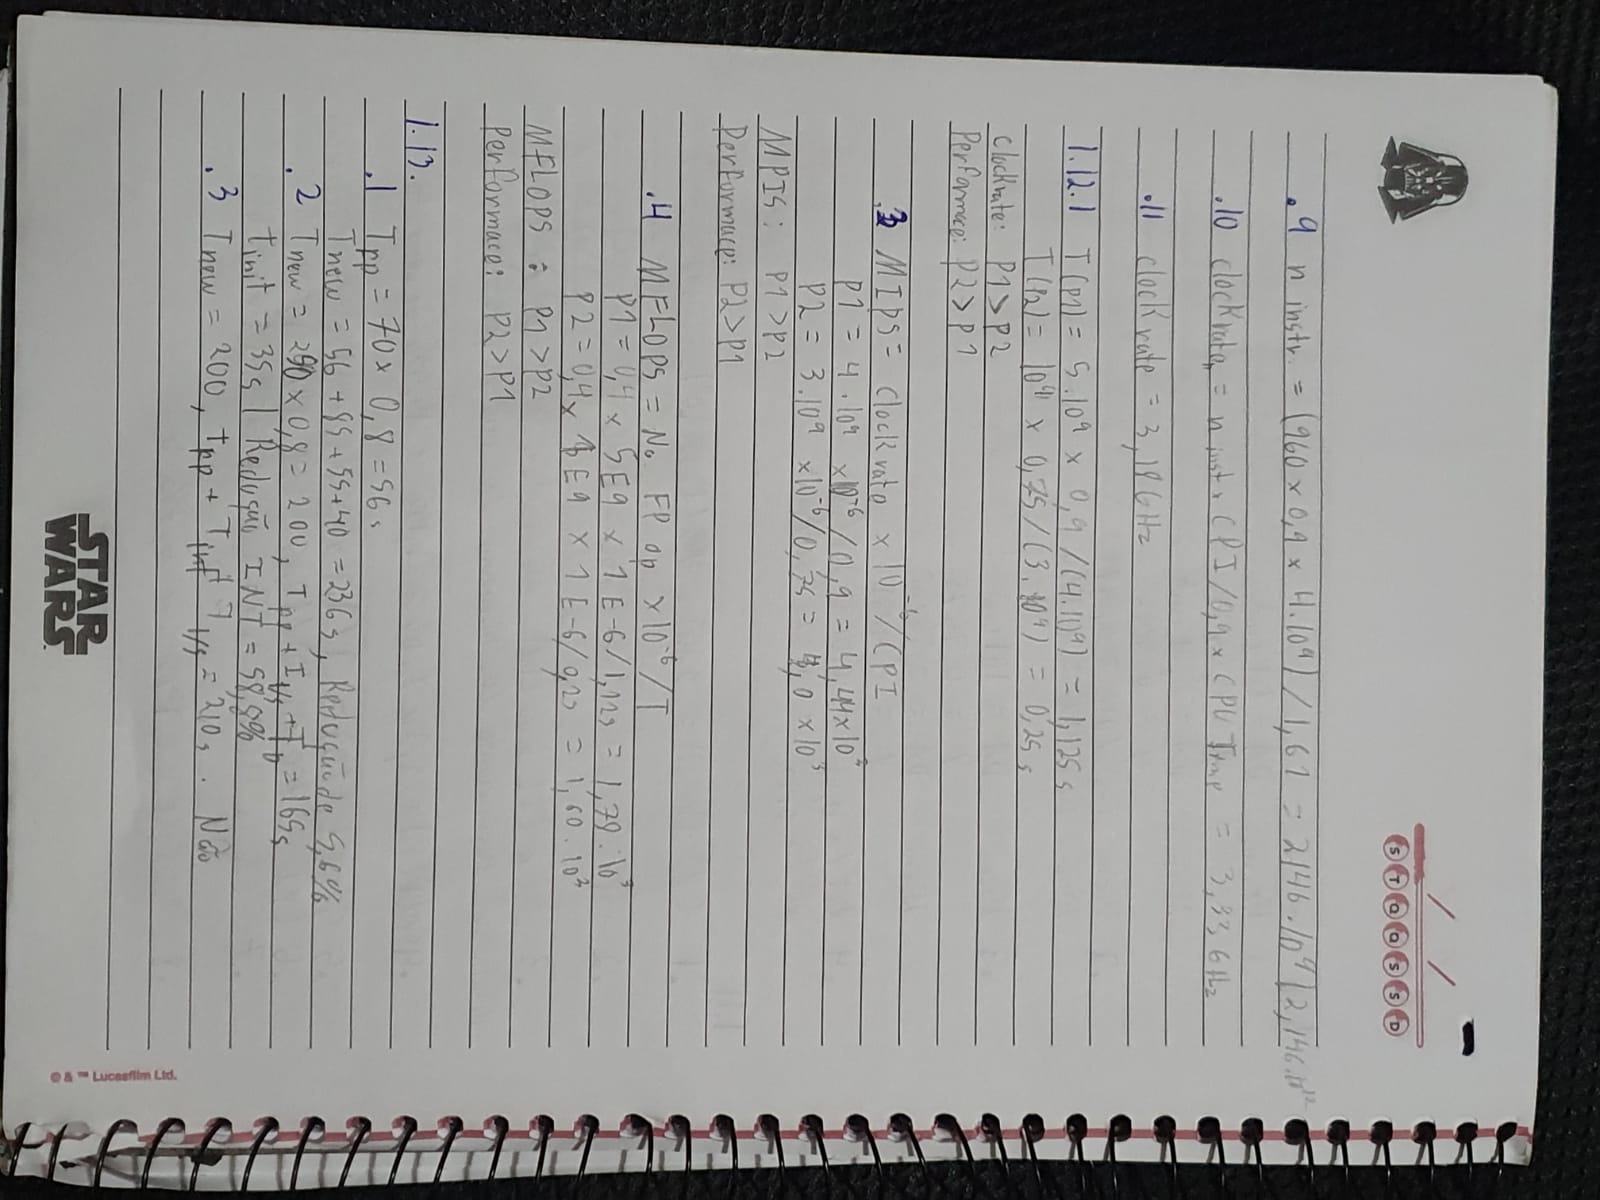 S T Q Q S S D
.9 n instr. = (960 x 0,9 x 4.10⁹) / 1,61 = 2146.10⁹ | 2,146.10¹²
.10 clock rate = n inst x CPI / 0,9 x CPU Time = 3,33 GHz
.11 clock rate = 3,18 GHz
1.12.1 T(P1) = 5.10⁹ x 0,9 / (4.10⁹) = 1,125 s
T(P2) = 10⁹ x 0,75 / (3.10⁹) = 0,25 s
clockrate: P1 > P2
Performace: P2 > P1
.3 MIPS = clock rate x 10⁻⁶ / CPI
P1 = 4.10⁹ x 10⁻⁶ / 0,9 = 4,44 x 10³
P2 = 3.10⁹ x 10⁻⁶ / 0,75 = 4,0 x 10³
MPIS: P1 > P2
Performace: P2 > P1
.4 MFLOPS = No FP op x 10⁻⁶ / T
P1 = 0,4 x 5E9 x 1E-6 / 1,125 = 1,78.10³
P2 = 0,4 x 1E9 x 1E-6 / 0,25 = 1,60.10³
MFLOPS : P1 > P2
Performace: P2 > P1
1.13.
.1 Tpp = 70 x 0,8 = 56 s
Tnew = 56 + 85 + 55 + 40 = 236 s, Redução de 5,6%
.2 Tnew = 250 x 0,8 = 200, Tpp + T l/s + Tb = 165 s
tint = 35 s | Redução INT = 58,8%
.3 Tnew = 200, Tpp + Tint + T l/s = 210 s. Não
STAR
WARS
© & ™ Lucasfilm Ltd.